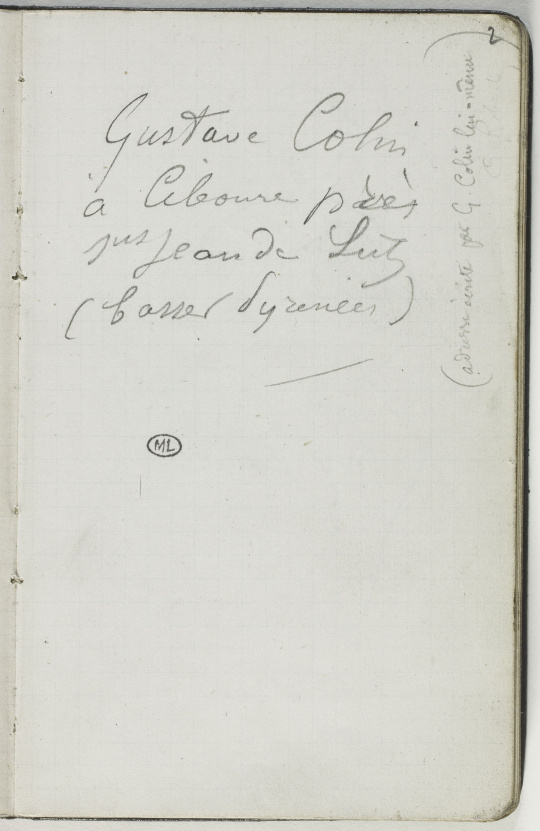 2
Gustave Colin
à Ciboure près
St Jean de Luz
(basses Pyrénées)
(adresse écrite par G. Colin lui-même
ML